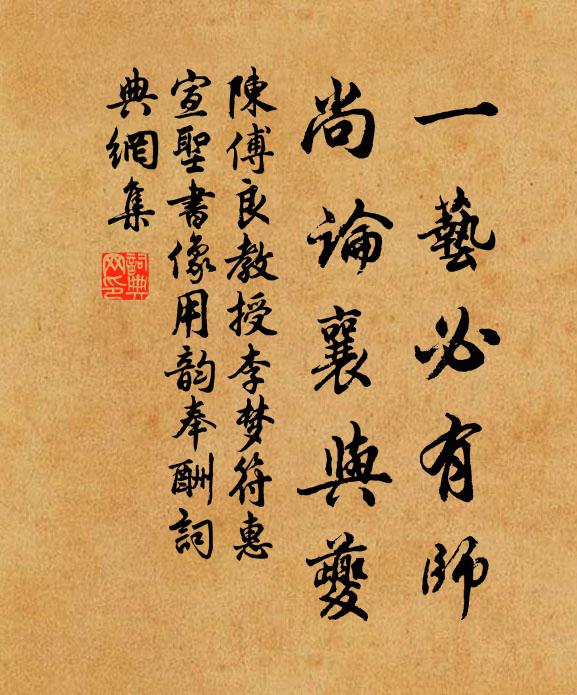 一藝必有師
尚論襄與夔
陳傅良教授李梦符惠
宣聖書像用韵奉酬詞
典網集
詞典網印